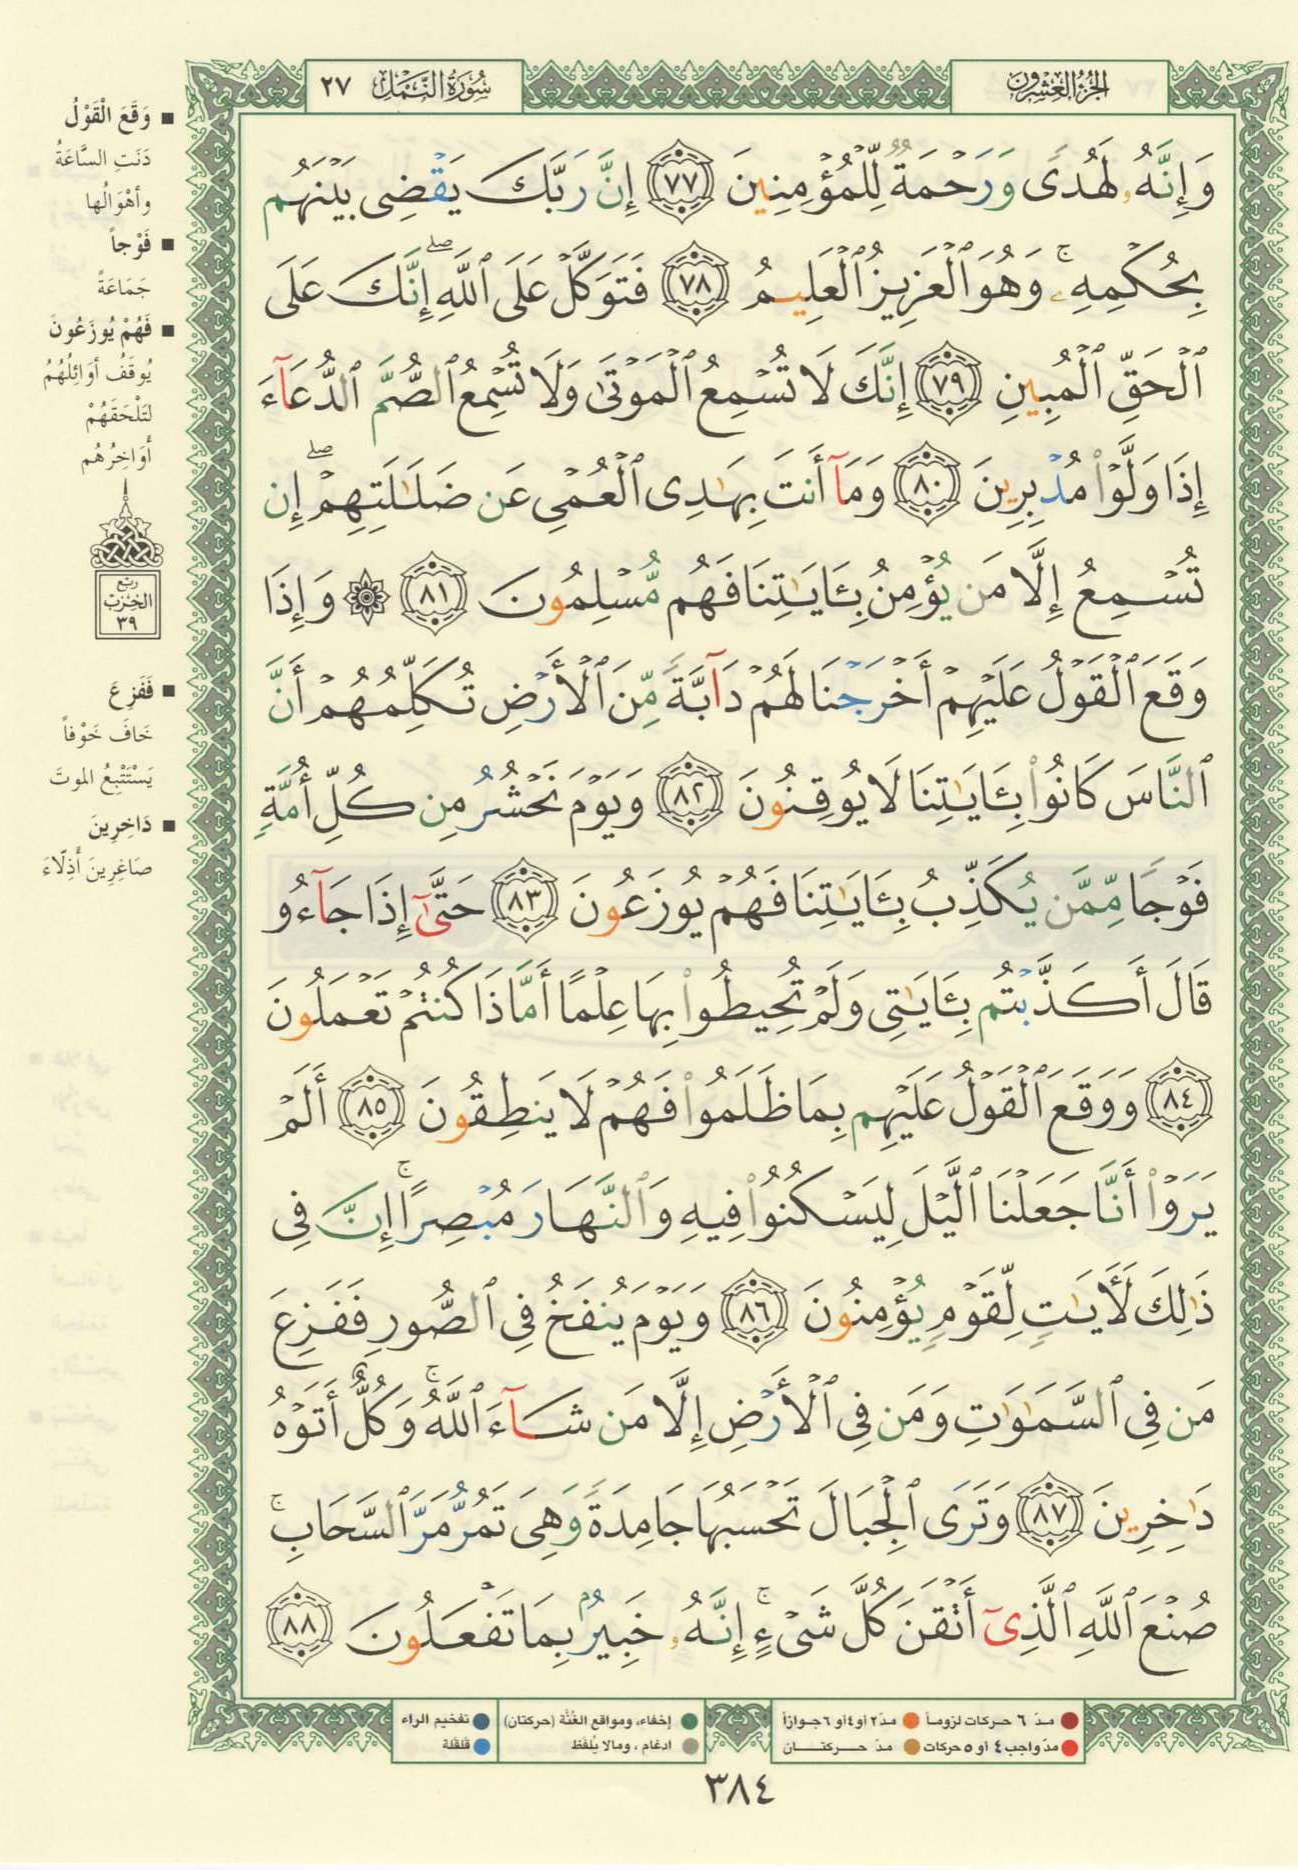 الجزء العشرون
سورة النمل ٢٧
وَإِنَّهُۥ لَهُدًى وَرَحْمَةٌ لِّلْمُؤْمِنِينَ ٧٧ إِنَّ رَبَّكَ يَقْضِى بَيْنَهُم
بِحُكْمِهِۦ ۚ وَهُوَ ٱلْعَزِيزُ ٱلْعَلِيمُ ٧٨ فَتَوَكَّلْ عَلَى ٱللَّهِ ۖ إِنَّكَ عَلَى
ٱلْحَقِّ ٱلْمُبِينِ ٧٩ إِنَّكَ لَا تُسْمِعُ ٱلْمَوْتَىٰ وَلَا تُسْمِعُ ٱلصُّمَّ ٱلدُّعَآءَ
إِذَا وَلَّوْا۟ مُدْبِرِينَ ٨٠ وَمَآ أَنتَ بِهَـٰدِى ٱلْعُمْىِ عَن ضَلَـٰلَتِهِمْ ۖ إِن
تُسْمِعُ إِلَّا مَن يُؤْمِنُ بِـَٔايَـٰتِنَا فَهُم مُّسْلِمُونَ ٨١ ۞ وَإِذَا
وَقَعَ ٱلْقَوْلُ عَلَيْهِمْ أَخْرَجْنَا لَهُمْ دَآبَّةً مِّنَ ٱلْأَرْضِ تُكَلِّمُهُمْ أَنَّ
ٱلنَّاسَ كَانُوا۟ بِـَٔايَـٰتِنَا لَا يُوقِنُونَ ٨٢ وَيَوْمَ نَحْشُرُ مِن كُلِّ أُمَّةٍ
فَوْجًا مِّمَّن يُكَذِّبُ بِـَٔايَـٰتِنَا فَهُمْ يُوزَعُونَ ٨٣ حَتَّىٰٓ إِذَا جَآءُو
قَالَ أَكَذَّبْتُم بِـَٔايَـٰتِى وَلَمْ تُحِيطُوا۟ بِهَا عِلْمًا أَمَّاذَا كُنتُمْ تَعْمَلُونَ
٨٤ وَوَقَعَ ٱلْقَوْلُ عَلَيْهِم بِمَا ظَلَمُوا۟ فَهُمْ لَا يَنطِقُونَ ٨٥ أَلَمْ
يَرَوْا۟ أَنَّا جَعَلْنَا ٱلَّيْلَ لِيَسْكُنُوا۟ فِيهِ وَٱلنَّهَارَ مُبْصِرًا ۚ إِنَّ فِى
ذَٰلِكَ لَـَٔايَـٰتٍ لِّقَوْمٍ يُؤْمِنُونَ ٨٦ وَيَوْمَ يُنفَخُ فِى ٱلصُّورِ فَفَزِعَ
مَن فِى ٱلسَّمَـٰوَٰتِ وَمَن فِى ٱلْأَرْضِ إِلَّا مَن شَآءَ ٱللَّهُ ۚ وَكُلٌّ أَتَوْهُ
دَٰخِرِينَ ٨٧ وَتَرَى ٱلْجِبَالَ تَحْسَبُهَا جَامِدَةً وَهِىَ تَمُرُّ مَرَّ ٱلسَّحَابِ ۚ
صُنْعَ ٱللَّهِ ٱلَّذِىٓ أَتْقَنَ كُلَّ شَىْءٍ ۚ إِنَّهُۥ خَبِيرٌۢ بِمَا تَفْعَلُونَ ٨٨
■ وَقَعَ الْقَوْلُ
دَنَتِ السَّاعَةُ
وأهْوَالُها
■ فَوْجاً
جَمَاعَةً
■ فَهُمْ يُوزَعُونَ
يُوقَفُ أَوَائِلُهُمْ
لِتَلْحَقَهُمْ
أَوَاخِرُهُم
ربع
الحزب
٣٩
■ فَفَزِعَ
خَافَ خَوْفاً
يَسْتَتْبِعُ الموتَ
■ دَاخِرِينَ
صَاغِرِينَ أَذِلّاءَ
مدّ ٦ حركات لزوماً مدّ٢ أو٤أو ٦جوازاً
مدّ واجب٤ أو ٥ حركات مدّ حــركتــان
إخفاء، ومواقع الغُنَّة (حركتان) تفخيم الراء
ادغام ، ومالا يُلفَظ قلقلة
٣٨٤